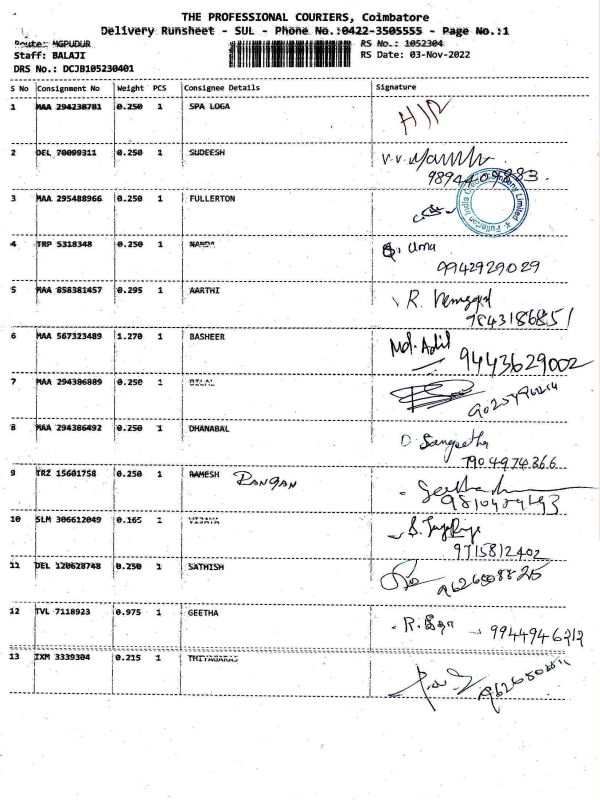 THE PROFESSIONAL COURIERS, Coimbatore
Delivery Runsheet - SUL - Phone No.:0422-3505555 - Page No.:1
Route: MGPUDUR
RS No.: 1052304
Staff: BALAJI
RS Date: 03-Nov-2022
DRS No.: DCJB105230401
S No Consignment No Weight PCS Consignee Details Signature
1 MAA 294238781 0.250 1 SPA LOGA H/R
2 DEL 70099311 0.250 1 SUDEESH V.V.
9894409883.
3 MAA 295488966 0.250 1 FULLERTON
Fullerton India Credit Company Limited
4 TRP 5318348 0.250 1 NANDA Uma
9942929029
5 MAA 858381457 0.295 1 AARTHI R.
7843186851
6 MAA 567323489 1.270 1 BASHEER Md. Adil 9443629002
7 MAA 294386889 0.250 1 BILAL
8 MAA 294386492 0.250 1 DHANABAL D. Sangeetha
7904974366
9 TRZ 15601758 0.250 1 RAMESH RANGAN
10 SLM 306612049 0.165 1 VIJAYA
9715812402
11 DEL 120628748 0.250 1 SATHISH
12 TVL 7118923 0.975 1 GEETHA R. கீதா 9944946212
13 IXM 3339304 0.215 1 THIYAGARAJ